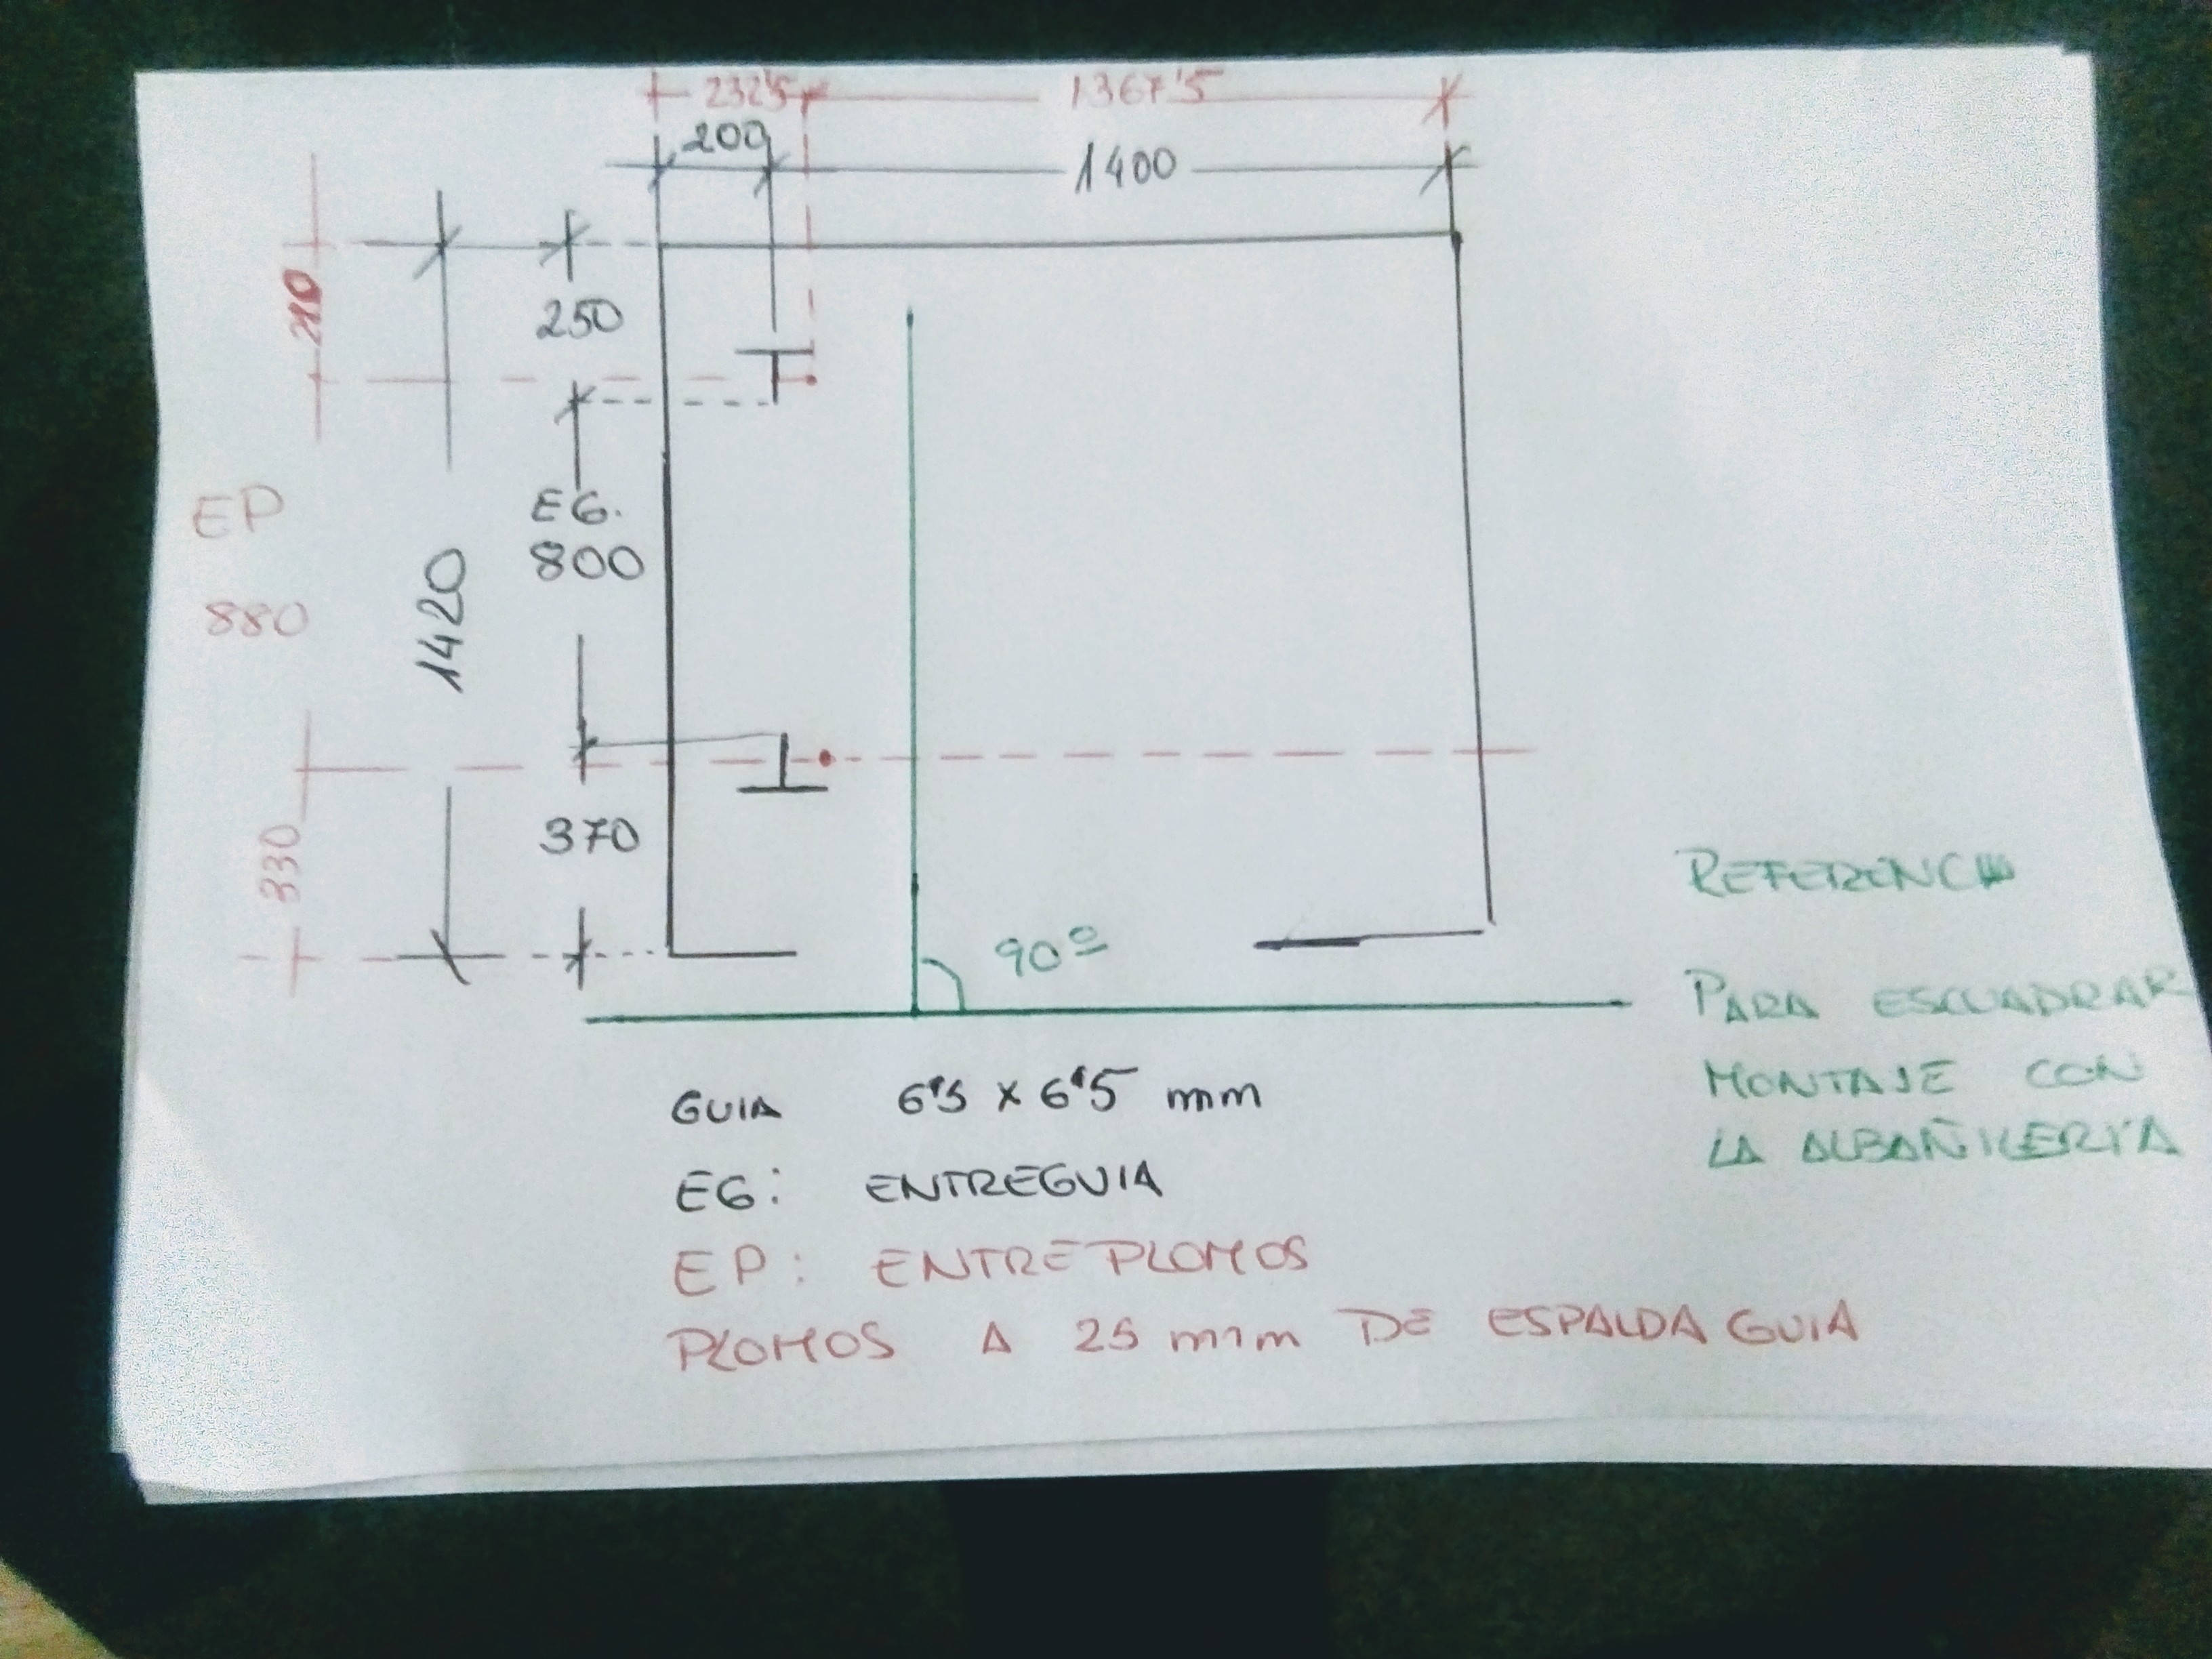 232'5 1367'5
200 1400
210
250
EP
880
1420
EG.
800
330
370
90º
REFERENCIA
PARA ESCUADRAR
MONTAJE CON
LA ALBAÑILERIA
GUIA 6'5 x 6'5 mm
EG: ENTREGUIA
EP: ENTREPLOMOS
PLOMOS A 25 mm DE ESPALDA GUIA